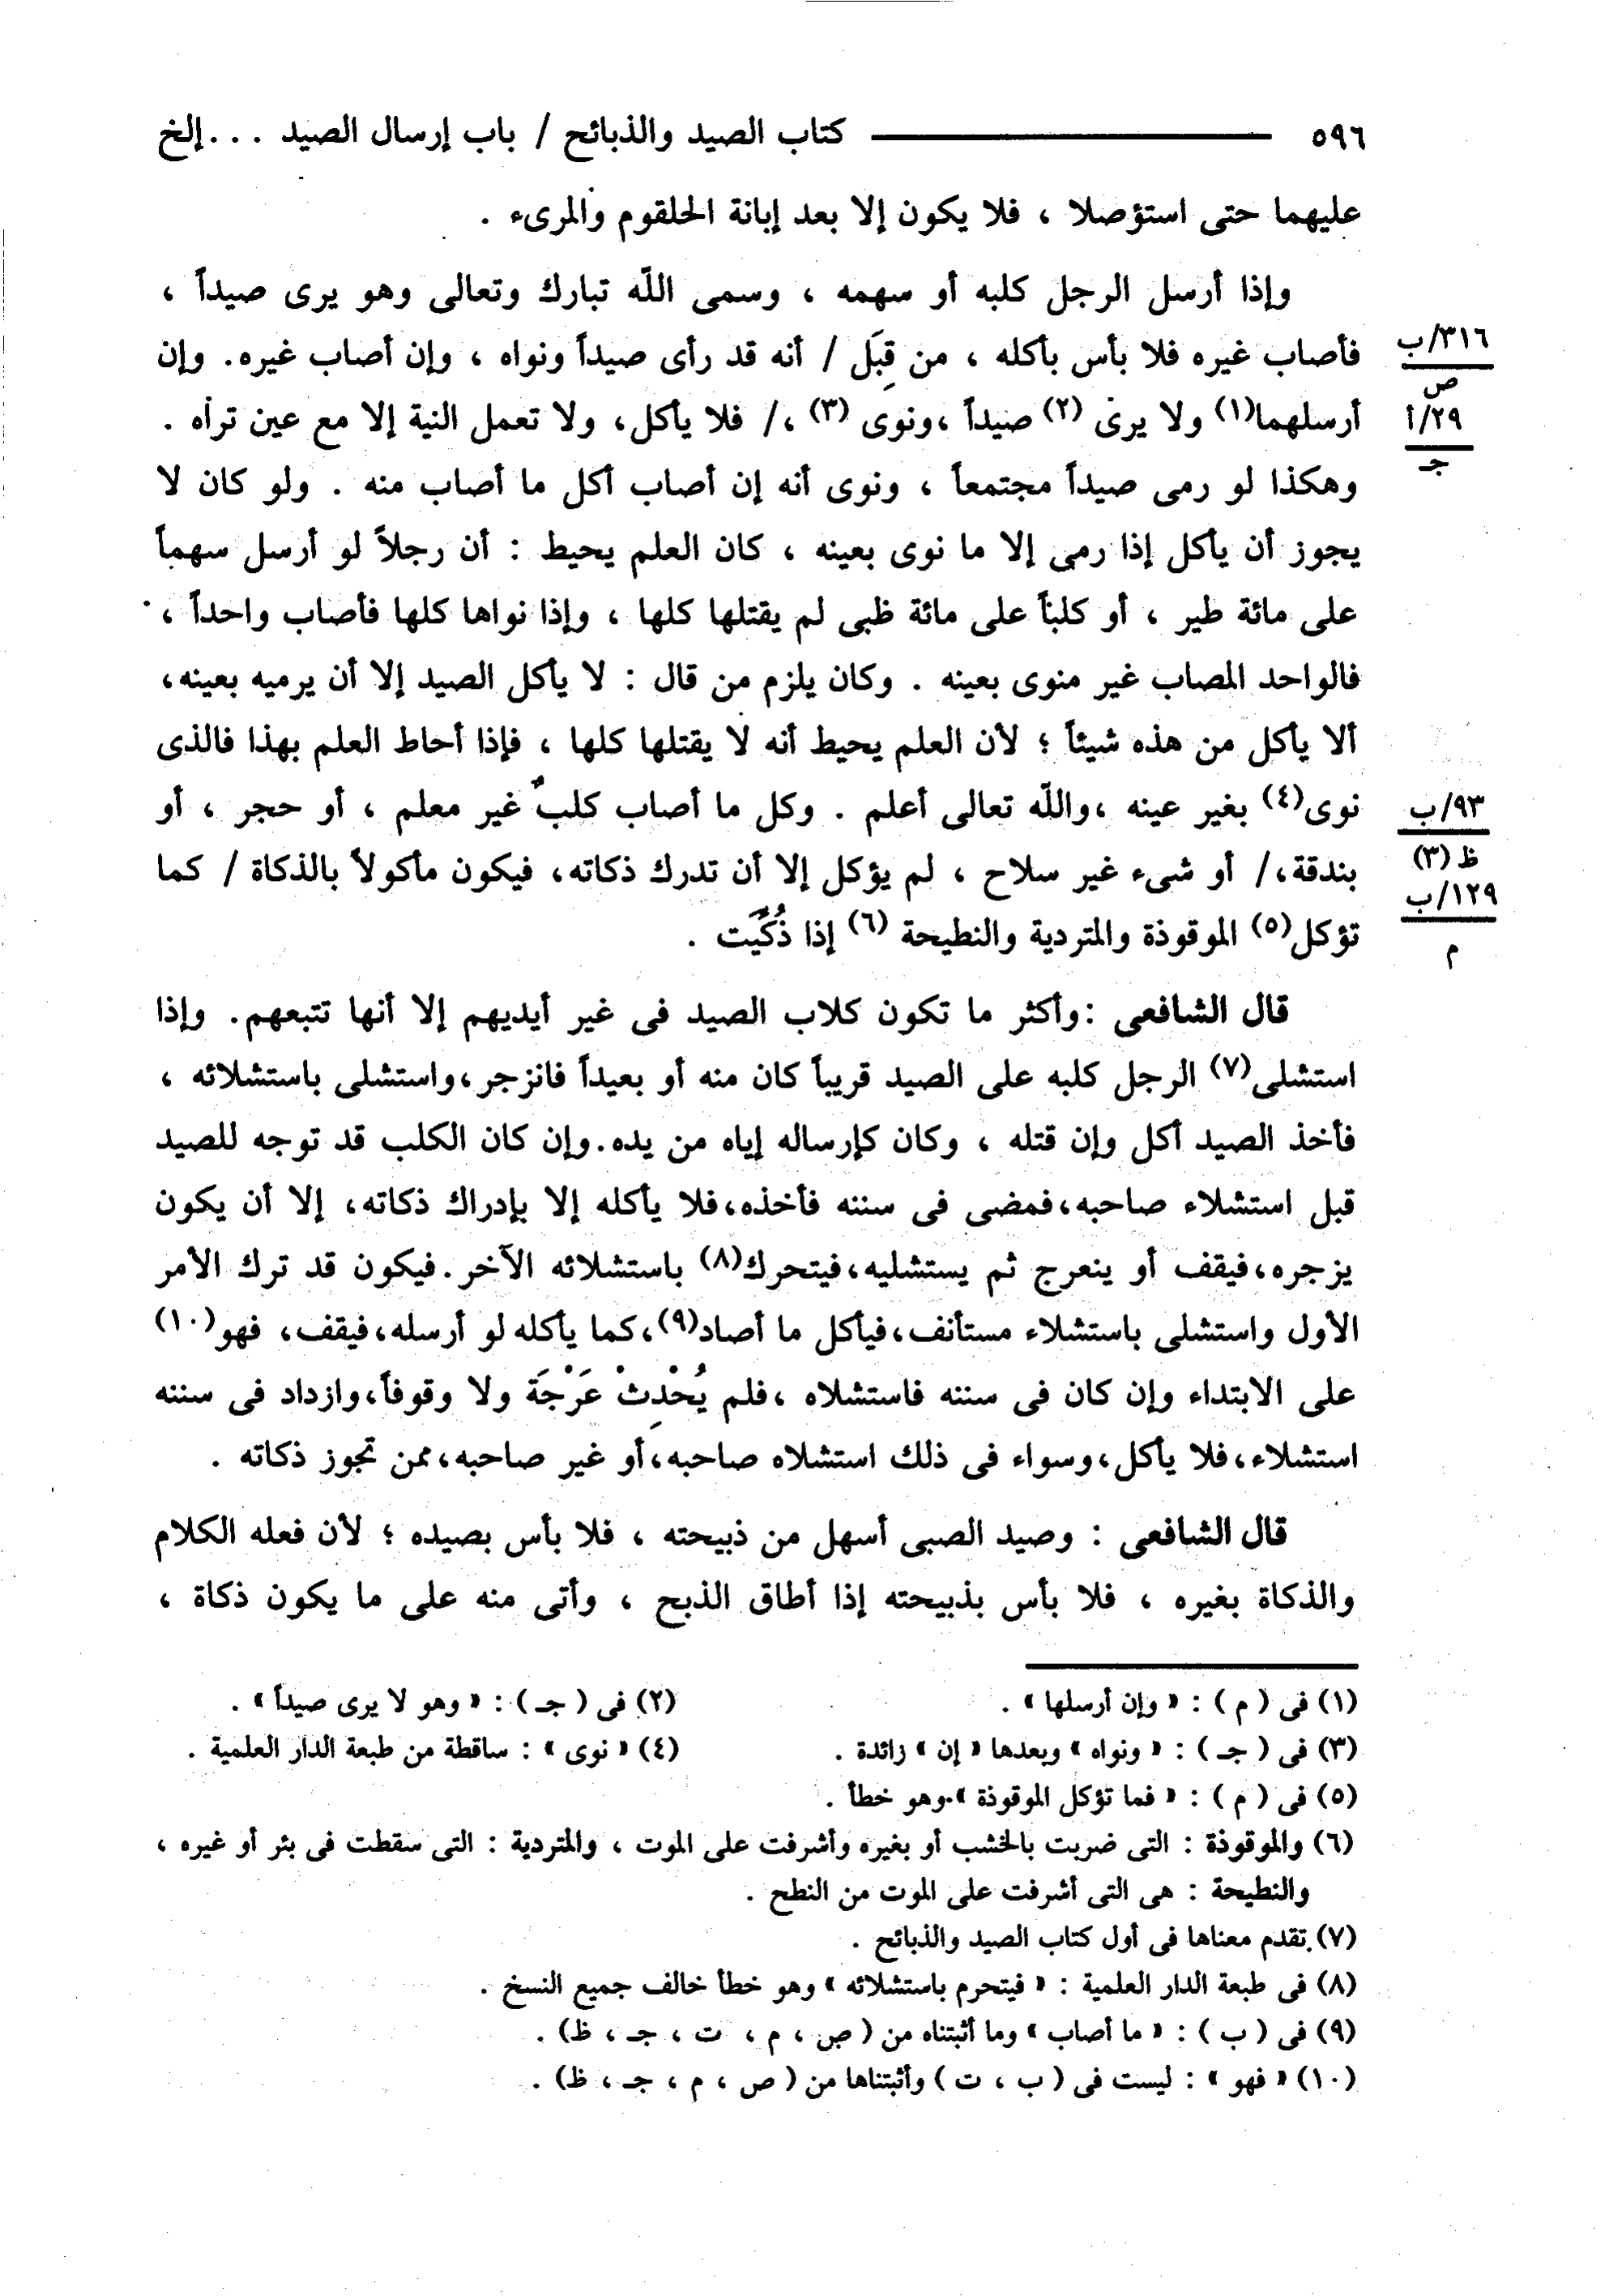 ٥٩٦ كتاب الصيد والذبائح / باب إرسال الصيد . . . إلخ
عليهما حتى استؤصلا ، فلا يكون إلا بعد إبانة الحلقوم والمرىء .
وإذا أرسل الرجل كلبه أو سهمه ، وسمى الله تبارك وتعالى وهو يرى صيداً ،
فأصاب غيره فلا بأس بأكله ، من قِبَل / أنه قد رأى صيداً ونواه ، وإن أصاب غيره. وإن
٣١٦/ب
ص
أرسلهما(١) ولا يرى (٢) صيداً ،ونوى (٣) ،/ فلا يأكل، ولا تعمل النية إلا مع عين تراه .
٢٩/أ
جـ
وهكذا لو رمى صيداً مجتمعاً ، ونوى أنه إن أصاب أكل ما أصاب منه . ولو كان لا
يجوز أن يأكل إذا رمى إلا ما نوى بعينه ، كان العلم يحيط : أن رجلاً لو أرسل سهماً
على مائة طير ، أو كلباً على مائة ظبى لم يقتلها كلها ، وإذا نواها كلها فأصاب واحداً ،
فالواحد المصاب غير منوى بعينه . وكان يلزم من قال : لا يأكل الصيد إلا أن يرميه بعينه،
ألا يأكل من هذه شيئاً ؛ لأن العلم يحيط أنه لا يقتلها كلها ، فإذا أحاط العلم بهذا فالذى
نوى(٤) بغير عينه ،والله تعالى أعلم . وكل ما أصاب كلبٌ غير معلم ، أو حجر ، أو
٩٣/ب
ظ (٣)
بندقة،/ أو شىء غير سلاح ، لم يؤكل إلا أن تدرك ذكاته، فيكون مأكولاً بالذكاة / كما
١٢٩/ب
م
تؤكل(٥) الموقوذة والمتردية والنطيحة (٦) إذا ذُكِّيت .
قال الشافعى :وأكثر ما تكون كلاب الصيد فى غير أيديهم إلا أنها تتبعهم. وإذا
استشلى(٧) الرجل كلبه على الصيد قريباً كان منه أو بعيداً فانزجر،واستشلى باستشلائه ،
فأخذ الصيد أكل وإن قتله ، وكان كإرساله إياه من يده.وإن كان الكلب قد توجه للصيد
قبل استشلاء صاحبه،فمضى فى سننه فأخذه،فلا يأكله إلا بإدراك ذكاته، إلا أن يكون
يزجره،فيقف أو ينعرج ثم يستشليه،فيتحرك(٨) باستشلائه الآخر.فيكون قد ترك الأمر
الأول واستشلى باستشلاء مستأنف،فيأكل ما أصاد(٩)،كما يأكله لو أرسله،فيقف، فهو(١٠)
على الابتداء وإن كان فى سننه فاستشلاه ،فلم يُحْدِثْ عَرْجَة ولا وقوفاً،وازداد فى سننه
استشلاء،فلا يأكل،وسواء فى ذلك استشلاه صاحبه،أو غير صاحبه،ممن تجوز ذكاته .
قال الشافعى : وصيد الصبى أسهل من ذبيحته ، فلا بأس بصيده ؛ لأن فعله الكلام
والذكاة بغيره ، فلا بأس بذبيحته إذا أطاق الذبح ، وأتى منه على ما يكون ذكاة ،
(١) فى ( م ) : « وإن أرسلها » .
(٢) فى ( جـ ) : « وهو لا يرى صيداً » .
(٣) فى ( جـ ) : « ونواه » وبعدها « إن » زائدة .
(٤) « نوى » : ساقطة من طبعة الدار العلمية .
(٥) فى ( م ) : « فما تؤكل الموقوذة ».وهو خطأ .
(٦) والموقوذة : التى ضربت بالخشب أو بغيره وأشرفت على الموت ، والمتردية : التى سقطت فى بئر أو غيره ،
والنطيحة : هى التى أشرفت على الموت من النطح .
(٧) تقدم معناها فى أول كتاب الصيد والذبائح .
(٨) فى طبعة الدار العلمية : « فيتحرم باستشلائه » وهو خطأ خالف جميع النسخ .
(٩) فى ( ب ) : « ما أصاب » وما أثبتناه من ( ص ، م ، ت ، جـ ، ظ) .
(١٠) « فهو » : ليست فى ( ب ، ت ) وأثبتناها من ( ص ، م ، جـ ، ظ) .